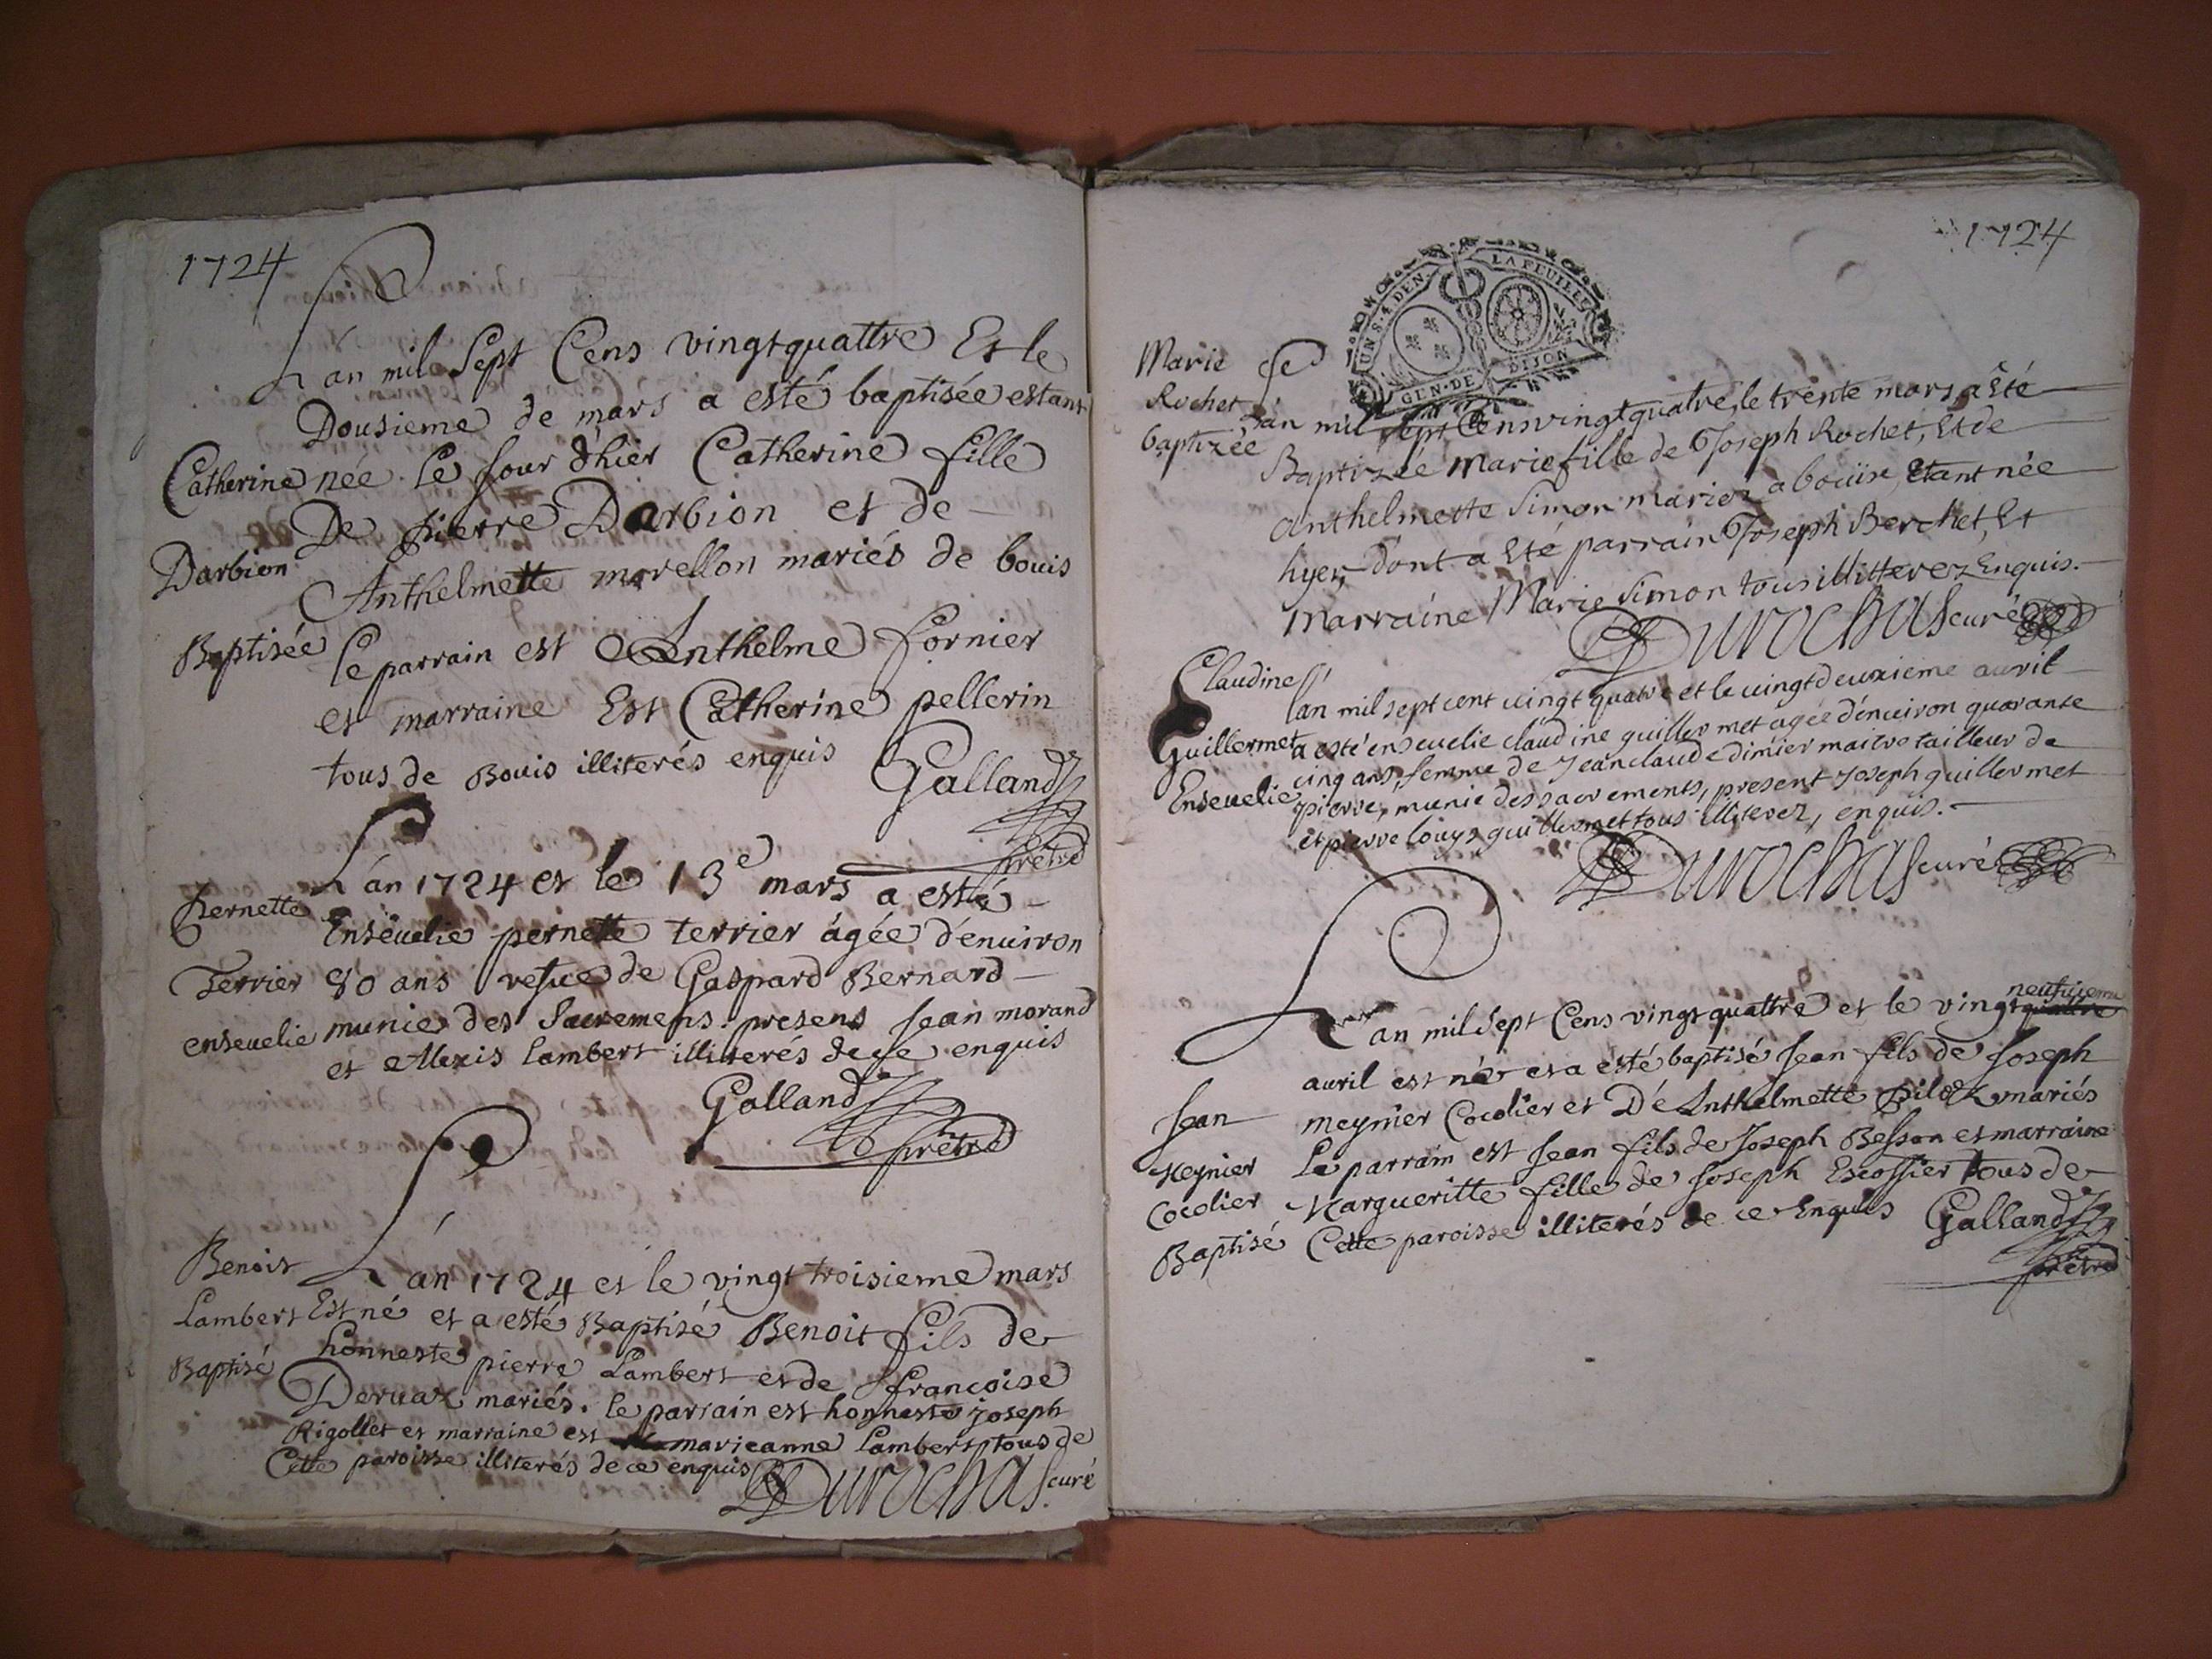 1724
L'an mil Sept Cens vingtquattre Et le
Dousieme de mars a esté baptisée estant
Catherine née le Jour d'hier Catherine fille
De pierre Darbion et de
Darbion
Anthelmette morellon mariés de bouis
Baptisée le parrain est Anthelme fornier
et marraine Est Catherine pellerin
tous de Bouis illiterés enquis Galland
prêtre
L'an 1724 et le 13e mars a esté
pernette
Enseuelie pernette terrier âgée d'enuiron
Terrier 80 ans vefue de Gaspard Bernard
enseuelie munie des Sacremens presens Jean morand
et Alexis lambert illiterés de ce enquis
Galland
prêtre
Benoit L'an 1724 et le vingt troisieme mars
Lambert Est né et a esté Baptisé Benoit fils de
honneste pierre Lambert et de francoise
Baptisé
Deruax mariés. le parrain est honneste joseph
Rigollet et marraine est marieanne Lambert tous de
Cette paroisse illiterés de ce enquis Durochas curé
1724
UN S. 4 DEN. LA FEUILLE
GEN. DE DIJON
Marie
Rochet
baptizée
L'an mil sept Cens vingt quatre, le trente mars, a Eté
Baptizée Marie fille de Joseph Rochet, Et de
Anthelmette Simon mariez a bouïse, Etant née
hyer, dont a Eté parrain Joseph Berchet, Et
marraine Marie Simon tous illitterez Enquis.
Durochas curé
Claudine
l'an mil sept cent vingt quatre et le vingt deuxieme auril
Guillermet a esté enseuelie claudine guillermet agée d'enuiron quarante
cinq ans, femme de Jean claude dimier maitre tailleur de
Enseuelie pierre, munie des sacrements, present Joseph guillermet
et pierre louys guillermet tous illiterez, enquis.
Durochas curé
neufuieme
L'an mil Sept Cens vingt quattre et le vingt quattre
auril est né et a été baptisé Jean fils de Joseph
Jean meynier Cocolier et De Anthelmette mariés
Meynier Le parrain est Jean fils de Joseph Besson et marraine
Cocolier Margueritte fille de Joseph Escossier tous de
Baptisé Cette paroisse illiterés de ce Enquis Galland
prêtre